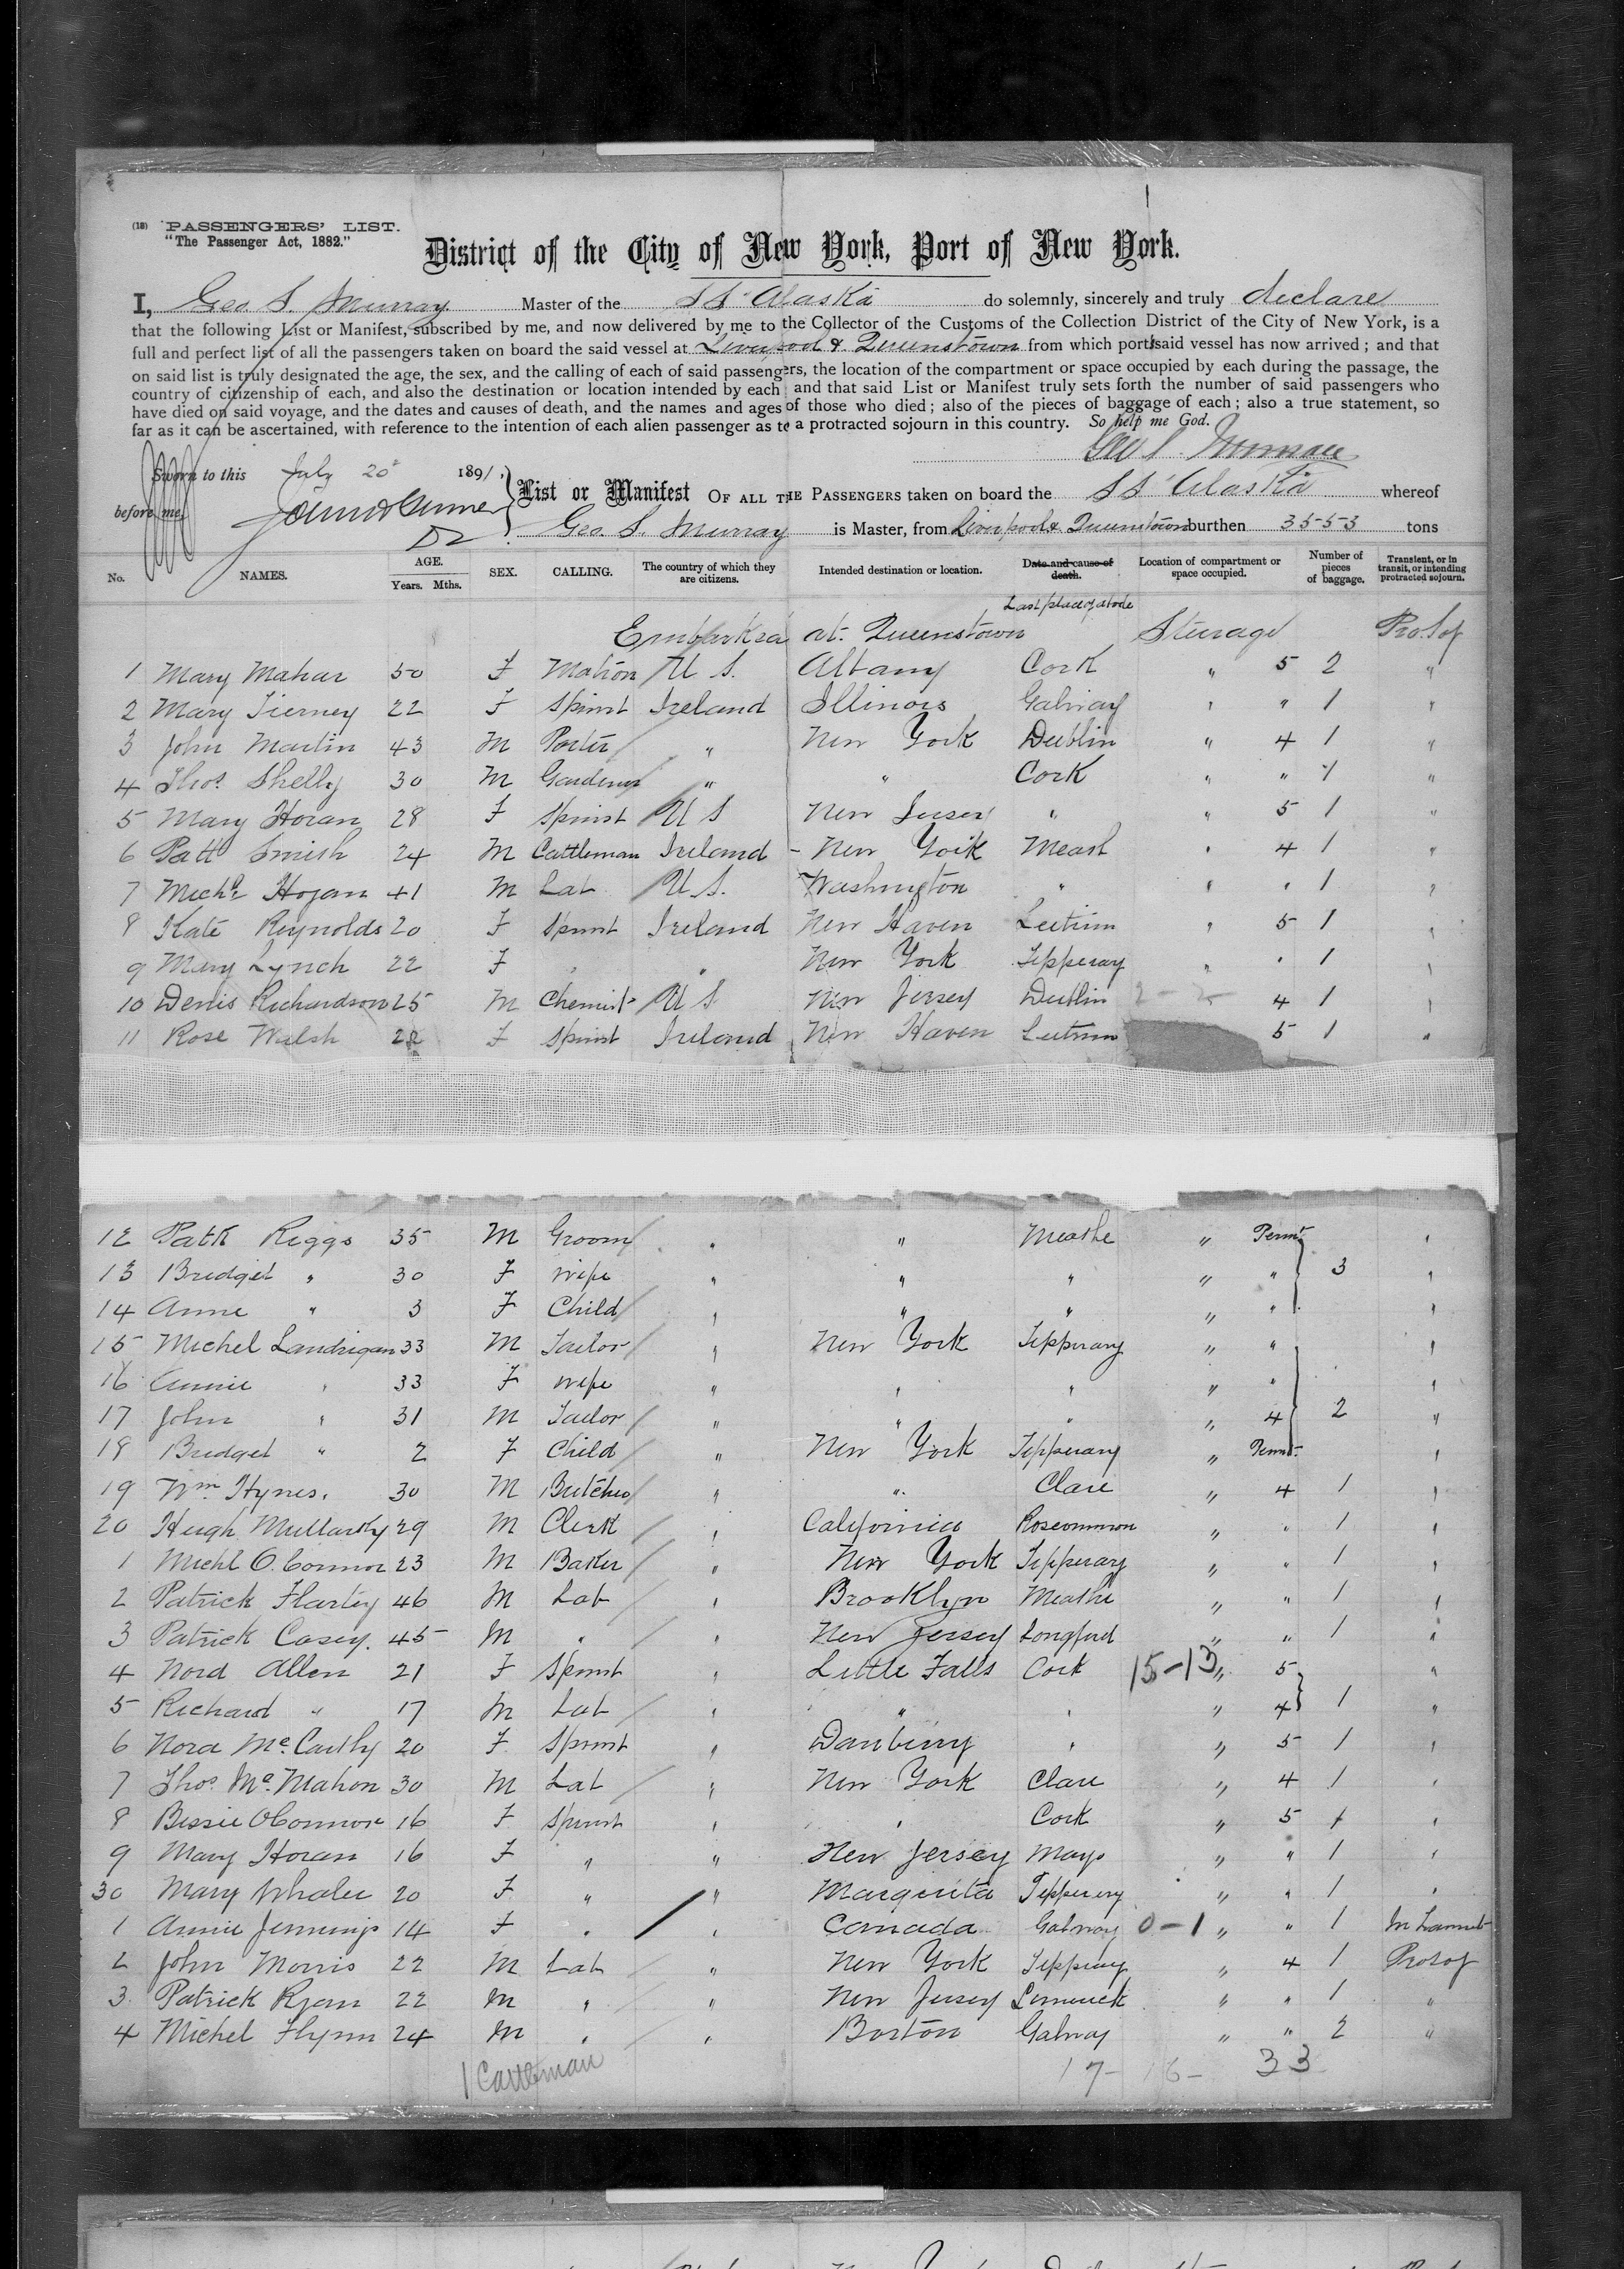 (18) PASSENGERS' LIST.
"The Passenger Act, 1882."
District of the City of New York, Port of New York.
I, Geo. S. Murray Master of the SS "Alaska do solemnly, sincerely and truly declare
that the following List or Manifest, subscribed by me, and now delivered by me to the Collector of the Customs of the Collection District of the City of New York, is a
full and perfect list of all the passengers taken on board the said vessel at Liverpool & Queenstown from which port said vessel has now arrived; and that
on said list is truly designated the age, the sex, and the calling of each of said passengers, the location of the compartment or space occupied by each during the passage, the
country of citizenship of each, and also the destination or location intended by each and that said List or Manifest truly sets forth the number of said passengers who
have died on said voyage, and the dates and causes of death, and the names and ages of those who died; also of the pieces of baggage of each; also a true statement, so
far as it can be ascertained, with reference to the intention of each alien passenger as to a protracted sojourn in this country. So help me God.
Geo S. Murray
Sworn to this July 20 1891.
before me
List or Manifest OF ALL THE PASSENGERS taken on board the SS "Alaska whereof
Geo. S. Murray is Master, from Liverpool & Queenstown burthen 3553 tons
No. NAMES. AGE. Years. Mths. SEX. CALLING. The country of which they are citizens. Intended destination or location. Date and cause of death. Location of compartment or space occupied. Number of pieces of baggage. Transient, or in transit, or intending protracted sojourn.
Last place of abode
Embarked at Queenstown Steerage Pro. Soj
1 Mary Mahar 50 F Matron U S. Albany Cork " 5 2 "
2 Mary Tierney 22 F Spinst Ireland Illinois Galway " " 1 "
3 John Martin 43 M Porter " New York Dublin " 4 1 "
4 Thos. Shelly 30 M Gardener " " Cork " " 1 "
5 Mary Horan 28 F Spinst U S New Jersey " " 5 1 "
6 Patt Smish 24 M Cattleman Ireland - New York Meath " 4 1 "
7 Michl. Hogan 41 M Lab U S. Washington " " " 1 "
8 Kate Reynolds 20 F Spinst Ireland New Haven Leitrim " 5 1 "
9 Mary Lynch 22 F " " New York Tipperay " " 1 "
10 Denis Richardson 25 M Chemist U S New Jersey Dublin 4 1 "
11 Rose Walsh 22 F Spinst Ireland New Haven Leitrim 5 1 "
12 Patk Riggs 35 M Groom " " Meathe " Perm " 
13 Bridget " 30 F wife " " " " " 3 "
14 Anne " 3 F Child " " " " " "
15 Michel Landrigan 33 M Tailor " New York Tipperary " " "
16 Annie " 33 F wife " " " " " "
17 John " 31 M Tailor " " " " 4 2 "
18 Bridget " 2 F Child " New York Tipperary " Perm "
19 Wm. Hynes. 30 M Butcher " " Clare " 4 1 "
20 Hugh Mullarky 29 M Clerk " California Roscommon " " 1 "
1 Michl O'Connor 23 M Baker " New York Tipperary " " 1 "
2 Patrick Flarty 46 M Lab " Brooklyn Meathe " " 1 "
3 Patrick Casey. 45 M " " New Jersey Longford " " 1 "
4 Nord Allen 21 F Spinst " Little Falls Cork 15-13 " 5 "
5 Richard " 17 M Lab " " " " 4 1 "
6 Nora McCarthy 20 F Spinst " Danbury " " 5 1 "
7 Thos. McMahon 30 M Lab " New York Clare " 4 1 "
8 Bessie OConnor 16 F Spinst " " Cork " 5 1 "
9 Mary Horan 16 F " " New Jersey Mayo " " 1 "
30 Mary Whalen 20 F " " Tipperary " " 1 "
1 Annie Jennings 14 F " " Canada Galway 0-1 " " 1
2 John Morris 22 M Lab " New York Tipperay " 4 1 Pro Soj
3 Patrick Ryan 22 M " " New Jersey Limerick " " 1 "
4 Michel Flynn 24 M " " Boston Galway " " 2 "
1 Cattleman 17- 16- 33